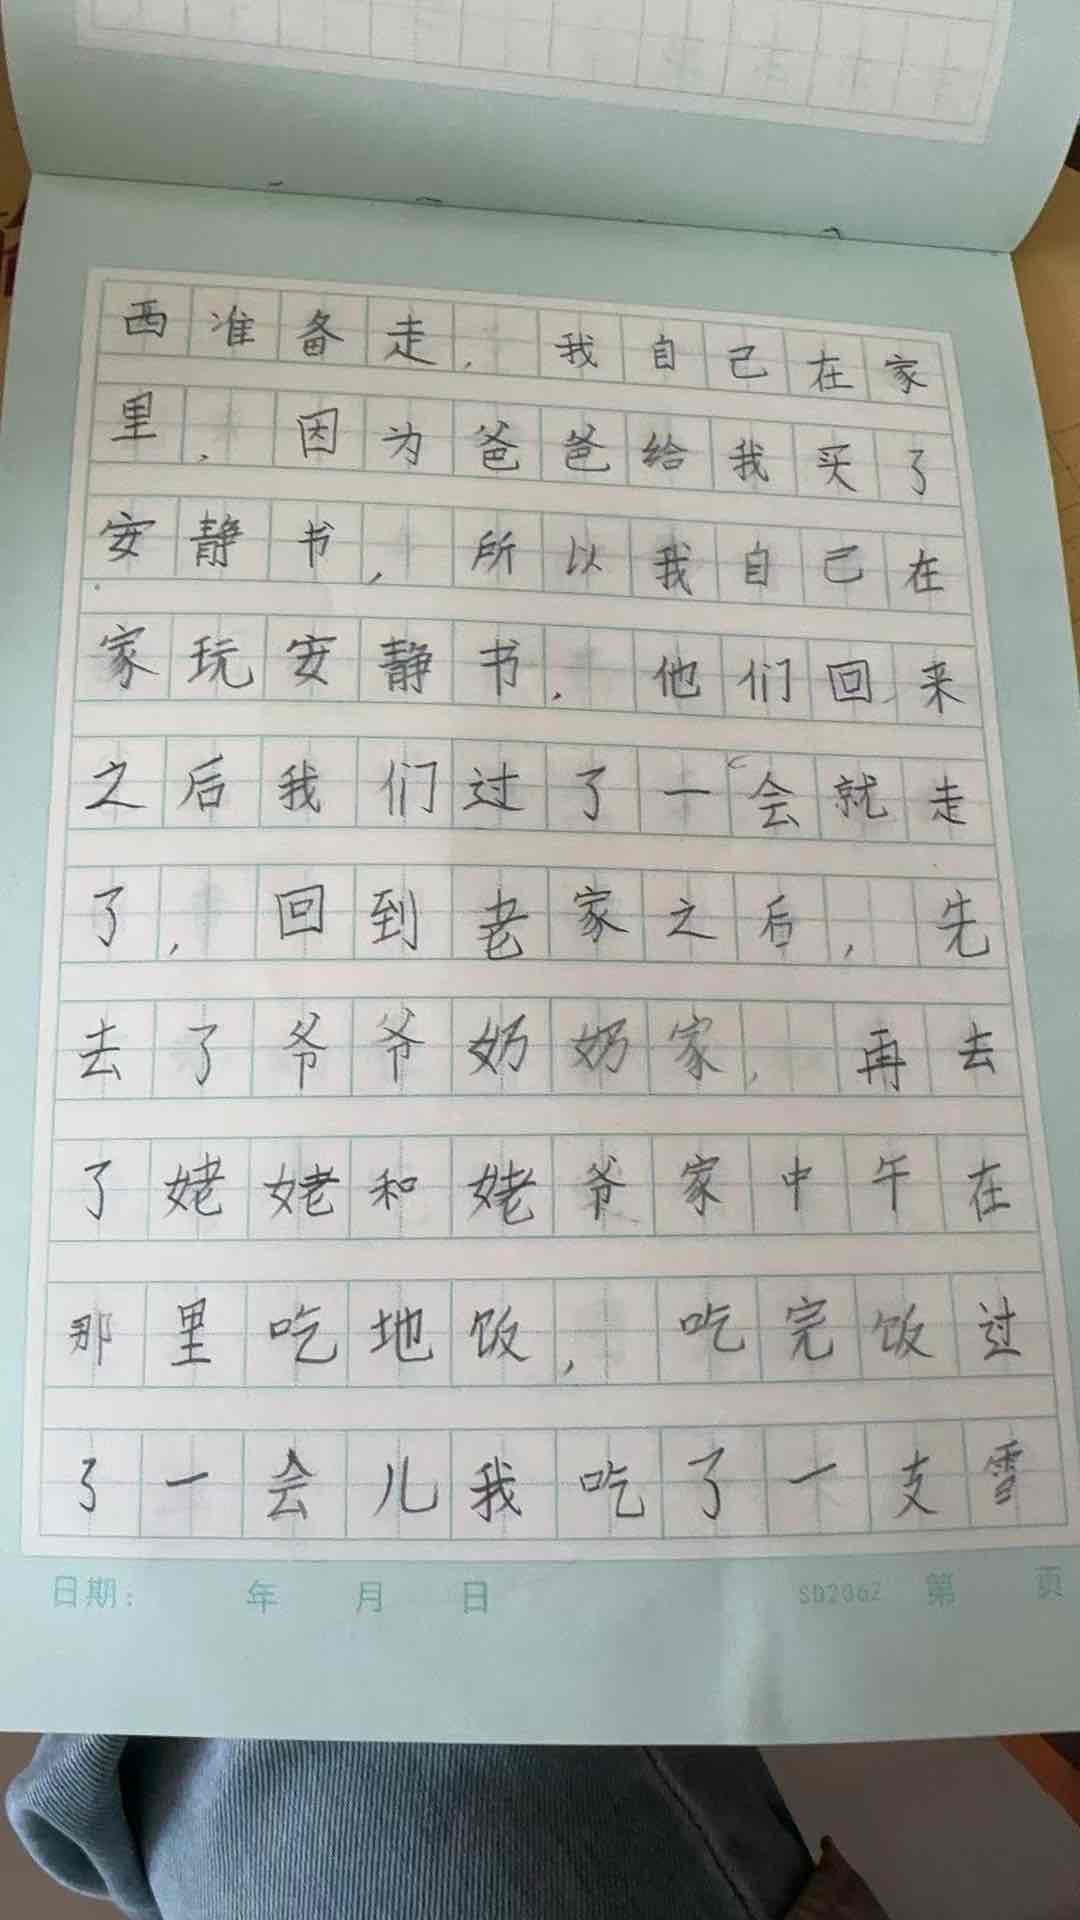 西准备走，我自己在家
里，因为爸爸给我买了
安静书，所以我自己在
家玩安静书，他们回来
之后我们过了一会就走
了，回到老家之后，先
去了爷爷奶奶家，再去
了姥姥和姥爷家中午在
那里吃地饭，吃完饭过
了一会儿我吃了一支雪
日期： 年 月 日 SD2062 第 页